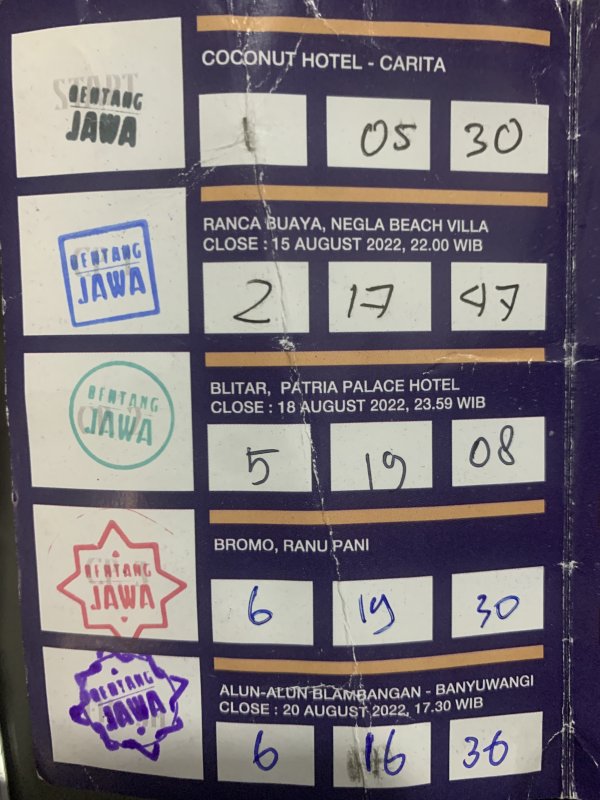 COCONUT HOTEL - CARITA
START
BENTANG
JAWA
1 05 30
RANCA BUAYA, NEGLA BEACH VILLA
CLOSE : 15 AUGUST 2022, 22.00 WIB
BENTANG
JAWA
2 17 47
BLITAR, PATRIA PALACE HOTEL
CLOSE : 18 AUGUST 2022, 23.59 WIB
BENTANG
JAWA
5 19 08
BROMO, RANU PANI
BENTANG
JAWA
6 19 30
ALUN-ALUN BLAMBANGAN - BANYUWANGI
CLOSE : 20 AUGUST 2022, 17.30 WIB
BENTANG
JAWA
6 16 36